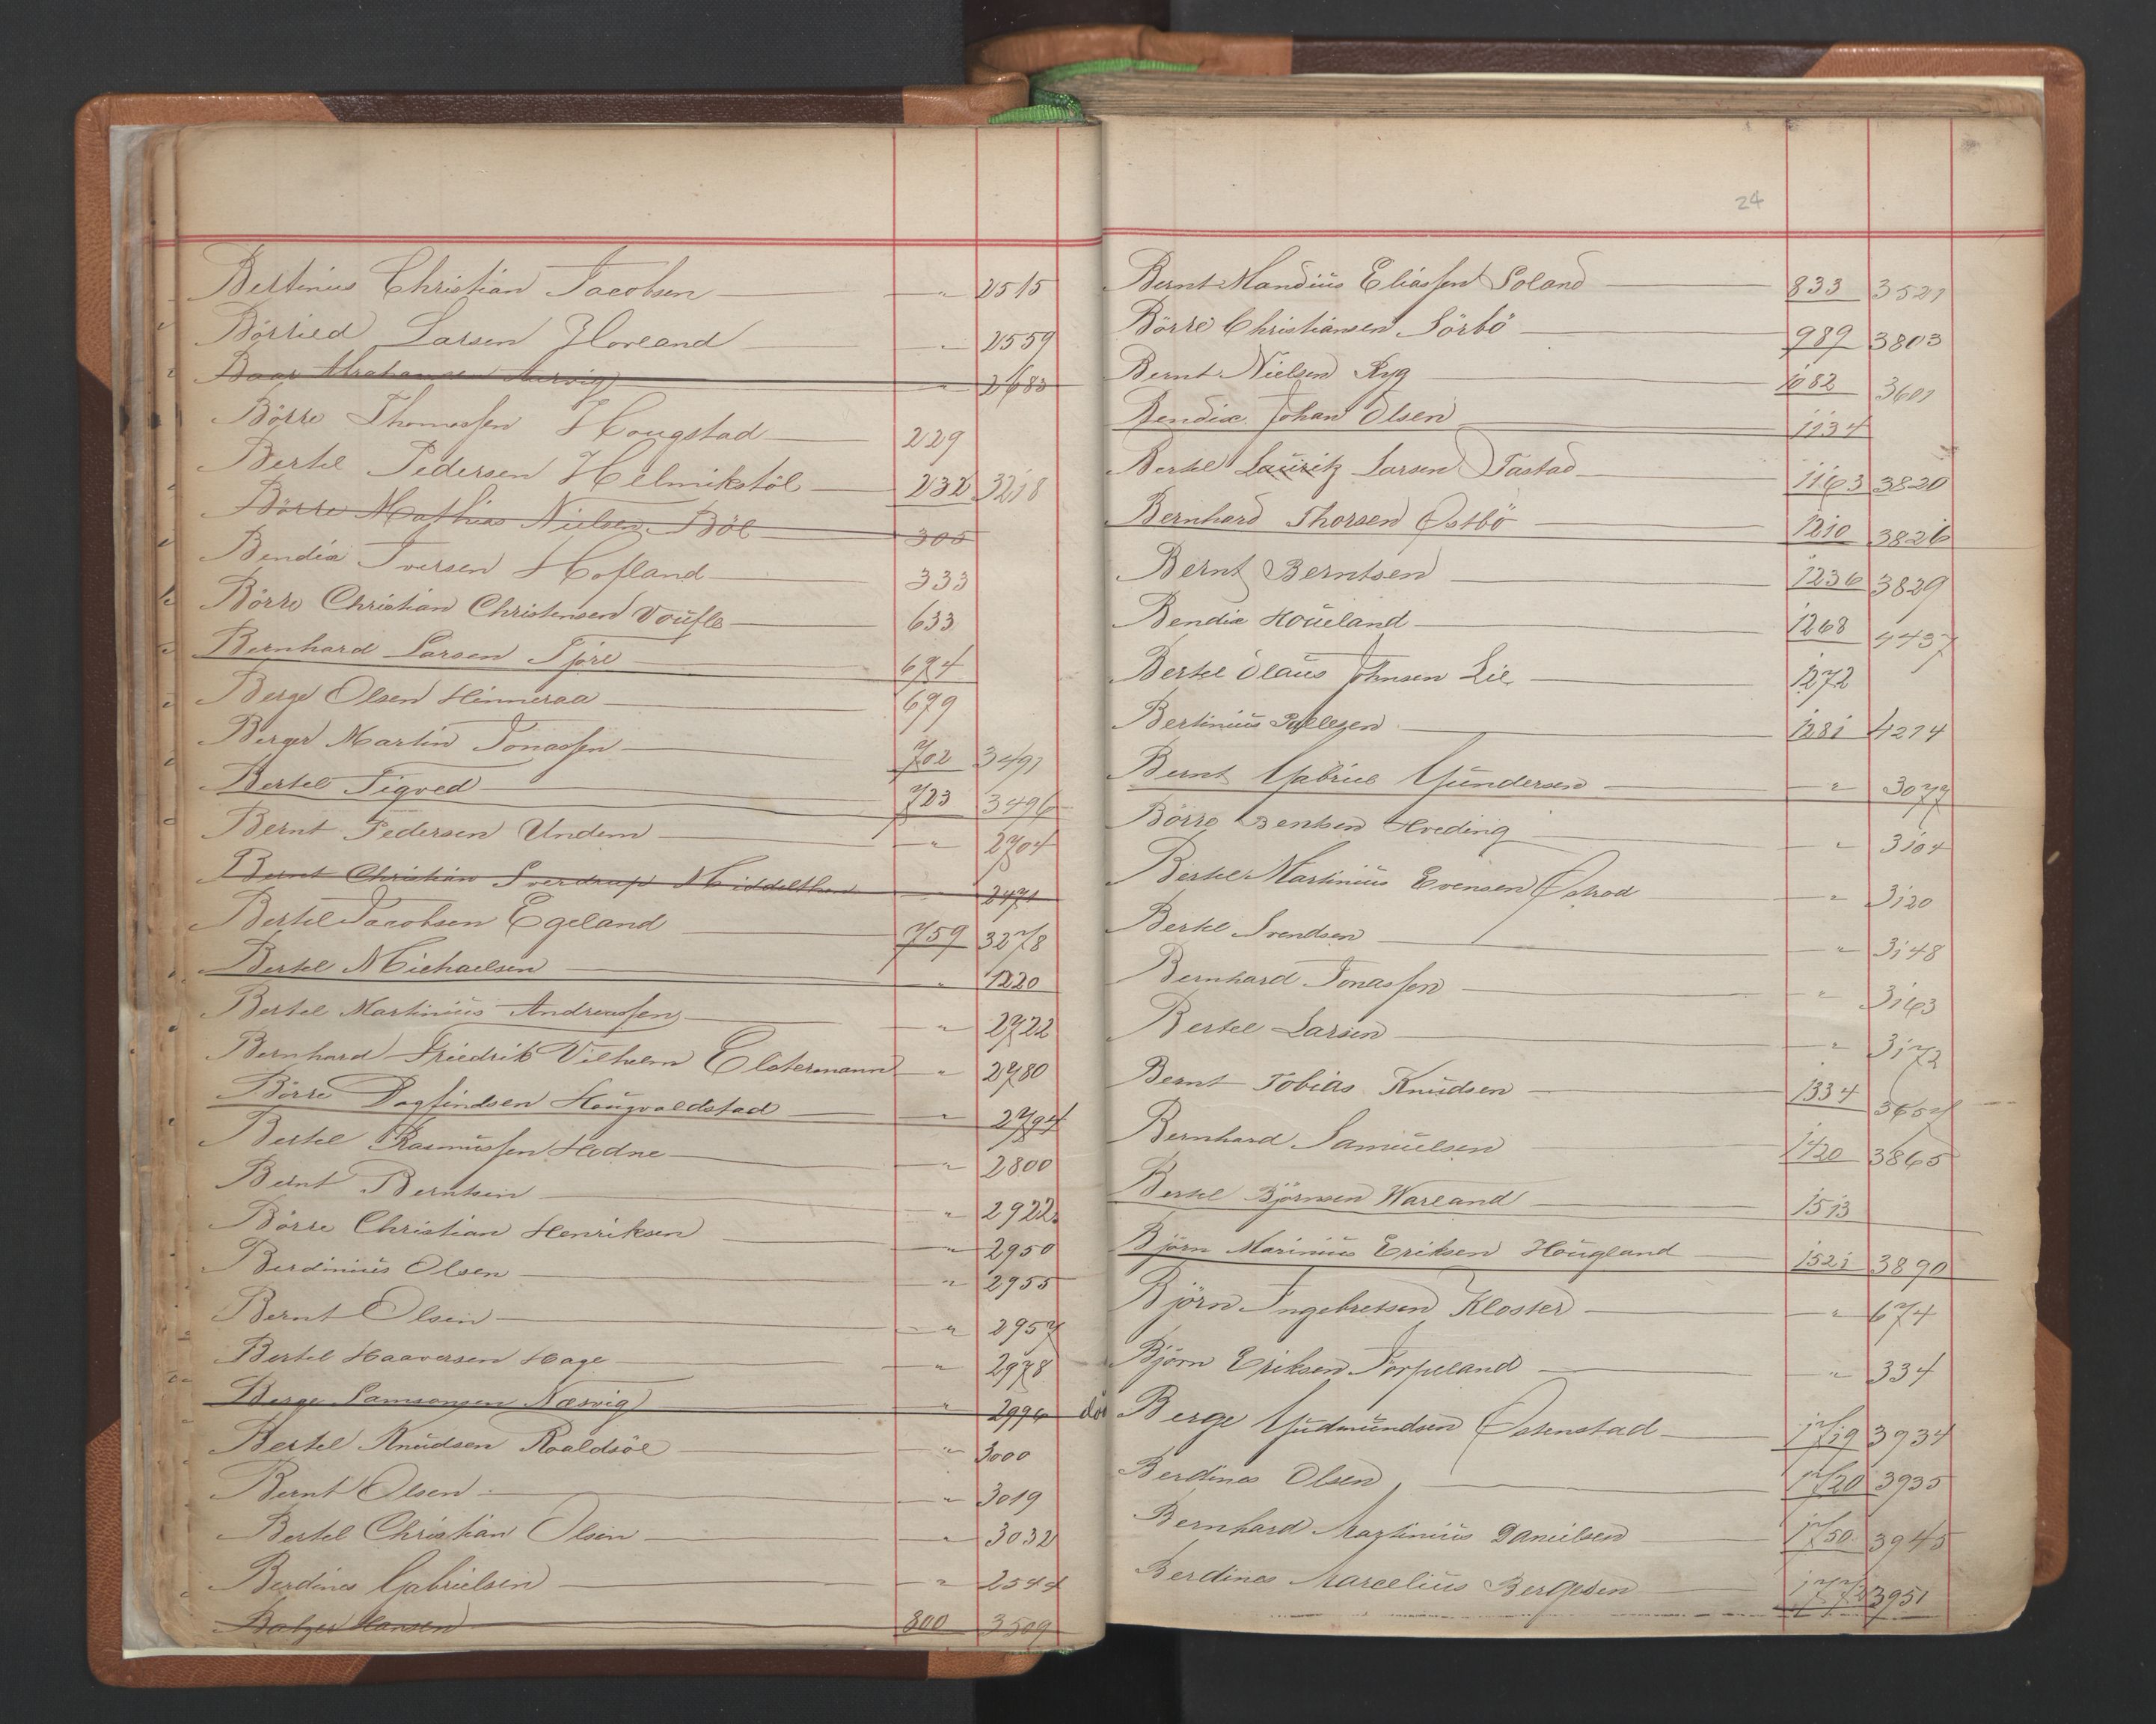 Bertinius Christian Jacobsen — " 2515
Börried Larsen Hoveand — " 2559
Baar Abrahamsen — " 2683
Börre Thomassen Hougstad — 229
Bertel Pedersen Helmikstöl — 232 3218
Börre Mathias Nielsen Böe — 305
Bendix Iversen Hofland — 333
Börre Christian Christensen — 633
Bernhard Larsen Tjöre — 694
Berge Olsen Hinneraa — 699
Berger Martin Jonassen — 702 3491
Bertel Tigved — 723 3496
Bernt Pedersen Undem — " 2704
Bernt Christian Sverdrup Middelthon — 2471
Bertel Jacobsen Egeland — 759 3278
Bertel Michaelsen — " 1220
Bertel Martinius Andreassen — " 2722
Bernhard Friedrik Vilhelm Elstermann — " 2780
Börre Dagfindsen Haugvaldstad — " 2794
Bertel Rasmussen Hodne — " 2800
Bernt Berntsen — " 2922
Börre Christian Henriksen — " 2950
Berdinius Olsen — " 2955
Bernt Olsen — " 2957
Bertel Haaversen Hage — " 2978
Berge Samsonsen Næsvig — " 2996
Bertel Knudsen Roaldsöe — " 3000
Bernt Olsen — " 3019
Bertel Christian Olsen — " 3032
Berdines Gabrielsen — " 2544
Balzer Hansen — 800 3509
24
Bernt Mandius Eliassen Soland — 833 3521
Börre Christiansen Sörbö — 989 3803
Bernt Nielsen Ryg — 1082 3601
Bendix Johan Olsen — 1134
Bertel Lauritz Larsen Tastad — 1163 3820
Bernhard Thorsen Østbö — 1210 3826
Bernt Berntsen — 1236 3829
Bendix Houeland — 1268 4437
Bertel Olaus Johnsen Lie — 1272
Bertinius Pallesen — 1281 4214
Bernt Gabriel Gundersen — " 3077
Börre Bentsen Hreding — " 3104
Bertel Martinius Evensen Østrod — " 3120
Bertel Svendsen — " 3148
Bernhard Jonassen — " 3163
Bertel Larsen — " 3172
Bernt Tobias Knudsen — 1334 3657
Bernhard Samuelsen — 1420 3865
Bertel Björnsen Wareand — 1513
Björn Marinius Eriksen Hougland — 1521 3890
Björn Ingebretsen Kloster — " 674
Björn Eriksen Torpeland — " 334
Berge Gudmundsen Østenstad — 1719 3934
Berdines Olsen — 1720 3935
Bernhard Martinius Danielsen — 1750 3945
Berdines Marcelius Bergesen — 1772 3951